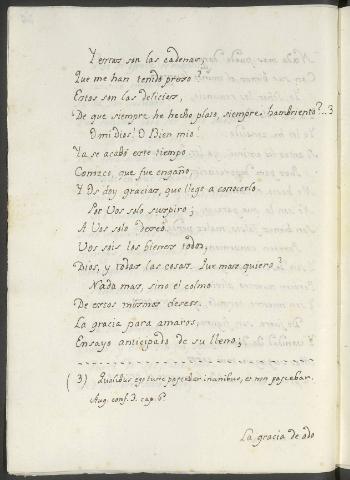 Y estas son las cadenas,
Que me han tenido preso?
Estas son las delicias,
De que siempre he hecho plato, siempre hambriento?..3
O mi dios! O Bien mio!
Ya se acabó este tiempo
Conozco, que fue engaño,
Y Os doy gracias, que llegè a conocerlo.
Por Vos solo suspiro;
A Vos solo deseo.
Vos sois los bienes todos,
Dios, y todas las cosas. Que mas quiero?
Nada mas, sino el colmo
De estos mismos deseos.
La gracia para amaros,
Ensayo anticipado de su lleno;
(3) Qualibus ego tunc pascebar inanibus, et non pascebar.
Aug. conf. 3. cap. 6º
La gracia de ado